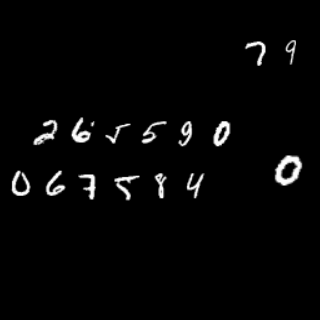 79
265590
067584
0